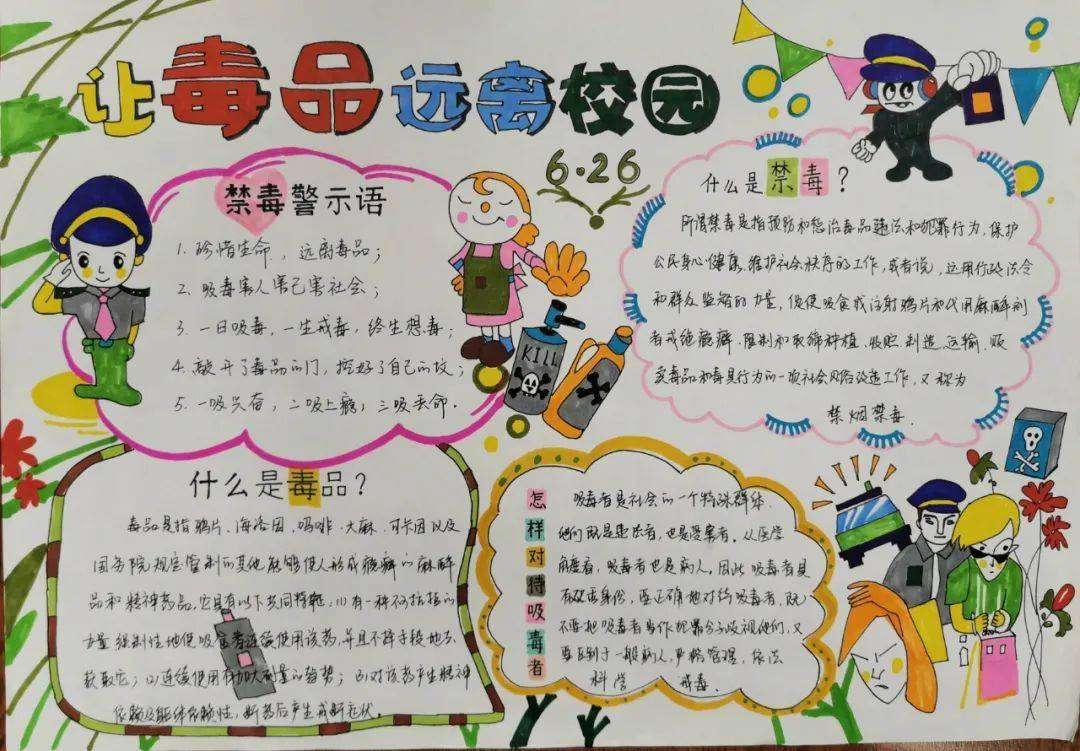 让毒品远离校园
6·26
禁毒警示语
1. 珍惜生命，远离毒品；
2. 吸毒害人害己害社会；
3. 一日吸毒，一生戒毒，终生想毒；
4. 敲开了毒品的门，挖好了自己的坟；
5. 一吸兴奋，二吸上瘾，三吸丧命.
KILL
什么是禁毒？
所谓禁毒是指预防和惩治毒品违法和犯罪行为，保护
公民身心健康，维护社会秩序的工作，或者说，运用行政法令
和群众监督的力量，促使吸食或注射鸦片和代用麻醉剂
者戒绝瘾癖.限制和取缔种植.收贮.制造.运输.贩
卖毒品和毒具行为的一项社会风俗改造工作，又称为
禁烟禁毒.
什么是毒品？
毒品是指鸦片.海洛因.吗啡.大麻.可卡因以及
国务院规定管制的其他能够使人形成瘾癖的麻醉
品和精神药品.它具有以下共同特征：(1)有一种不可抗拒的
力量强制性地使吸食者连续使用该药，并且不择手段地去
获取它；(2)连续使用有加大剂量的趋势；(3)对该药产生精神
依赖及躯体依赖性，断药后产生戒断症状.
怎样对待吸毒者
吸毒者是社会的一个特殊群体
他们既是违法者，也是受害者.从医学
角度看，吸毒者也是病人.因此吸毒者具
有双重身份，要正确地对待吸毒者，既
不要把吸毒者当作犯罪分子歧视他们，又
要区别于一般病人，严格管理，依法
科学 戒毒.